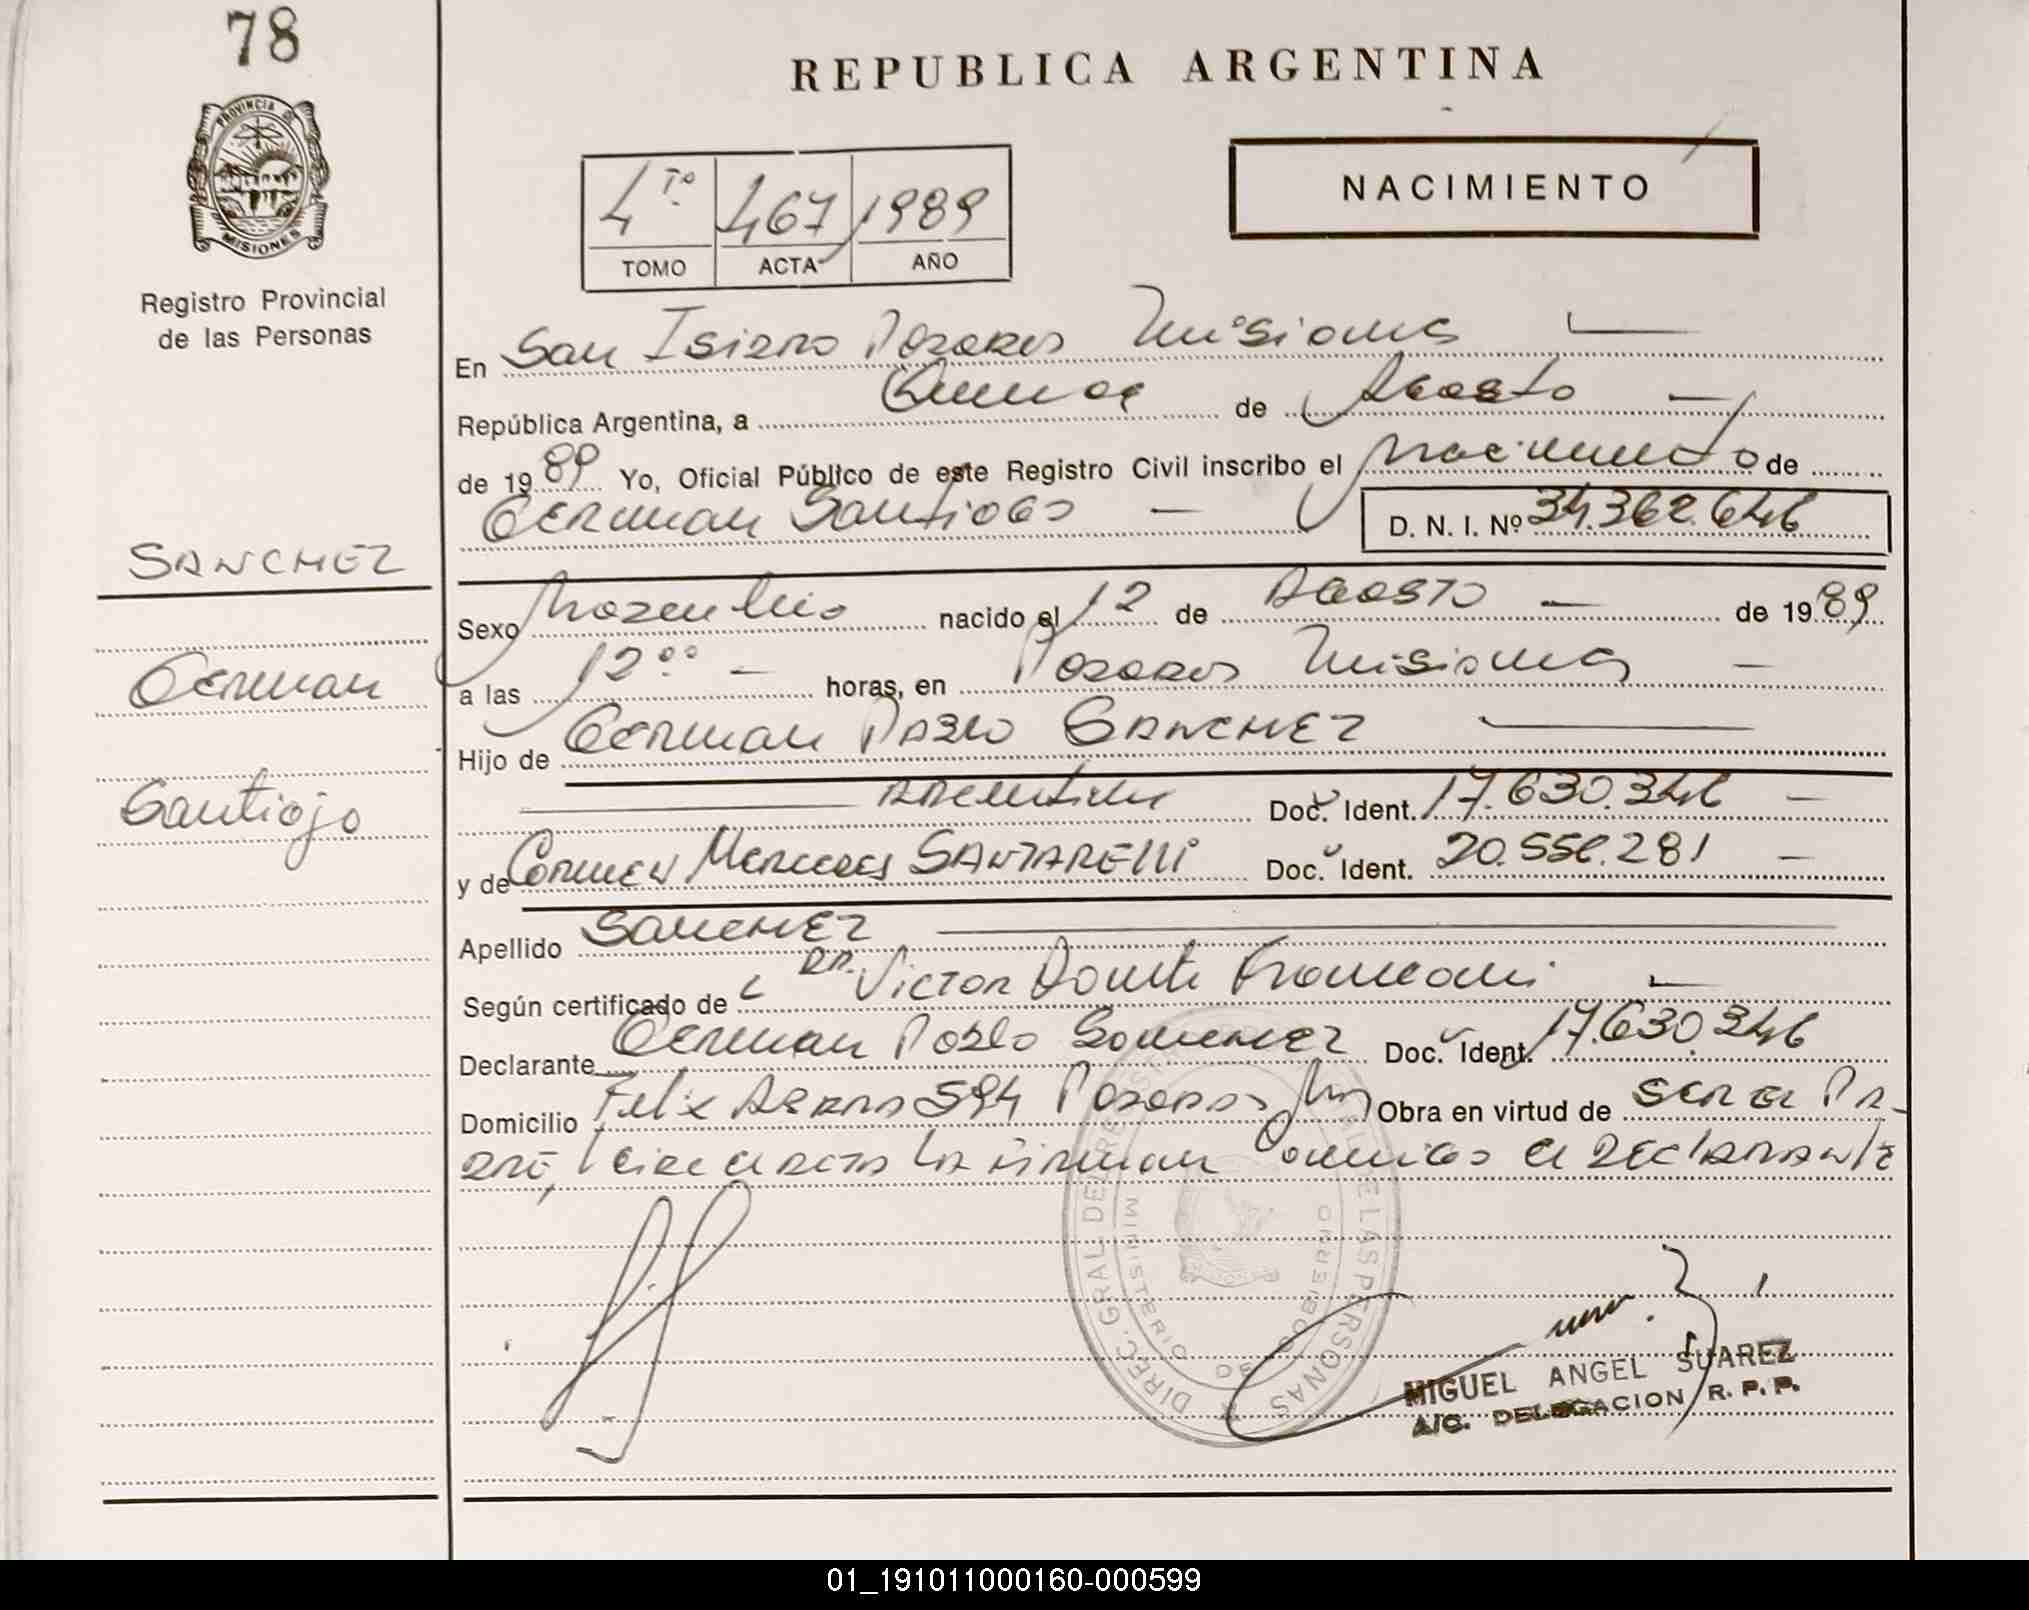 78
REPUBLICA ARGENTINA
PROVINCIA DE
MISIONES
Registro Provincial
de las Personas
NACIMIENTO
4to 467 1989
TOMO ACTA AÑO
En San Isidro Posadas Misiones
República Argentina, a Quince de Agosto
de 1989 Yo, Oficial Público de este Registro Civil inscribo el nacimiento de
German Santiago D. N. I. Nº 34.362.646
SANCHEZ
Sexo Masculino nacido el 12 de AGOSTO de 1989
German
a las 12°° horas, en Posadas Misiones
Hijo de German PABLO SANCHEZ
Santiago
ARGENTINA Doc. Ident. 17.630.346
y de Carmen Mercedes SANTARELLI Doc. Ident. 20.556.281
Apellido SANCHEZ
Según certificado de DR. Victor
Declarante German Pablo Sanchez Doc. Ident. 17.630.346
Domicilio Felix 594 Posadas Mnes Obra en virtud de SER EL PA-
DRE, Leida el acta la firman conmigo el DECLARANTE
DIREC. GRAL. DEL REGISTRO PROVINCIAL DE LAS PERSONAS
MINISTERIO DE GOBIERNO
MIGUEL ANGEL SUAREZ
A/C. DELEGACION R. P. P.
01_191011000160-000599